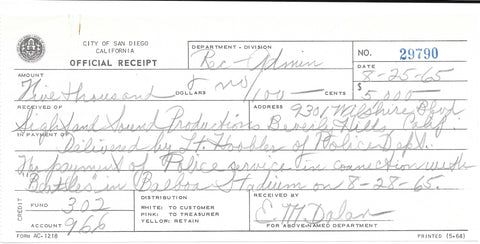 CITY OF SAN DIEGO
CALIFORNIA
OFFICIAL RECEIPT
DEPARTMENT - DIVISION
Rec-Admin
NO. 29790
DATE
8-25-65
AMOUNT
Five thousand & no/100 DOLLARS CENTS
$ 5,000—
RECEIVED OF
ADDRESS 9301 Wilshire Blvd
Sight and Sound Productions Beverly Hills, Calif.
IN PAYMENT OF
Delivered by Lt. Hoobler of Police Dept.
The payment of Police service in connection with
"Beatles" in Balboa Stadium on 8-28-65.
CREDIT
FUND 302
ACCOUNT 966
DISTRIBUTION
WHITE: TO CUSTOMER
PINK: TO TREASURER
YELLOW: RETAIN
RECEIVED BY
E. M. Dolan
FOR ABOVE-NAMED DEPARTMENT
FORM AC-1218
PRINTED (5-64)